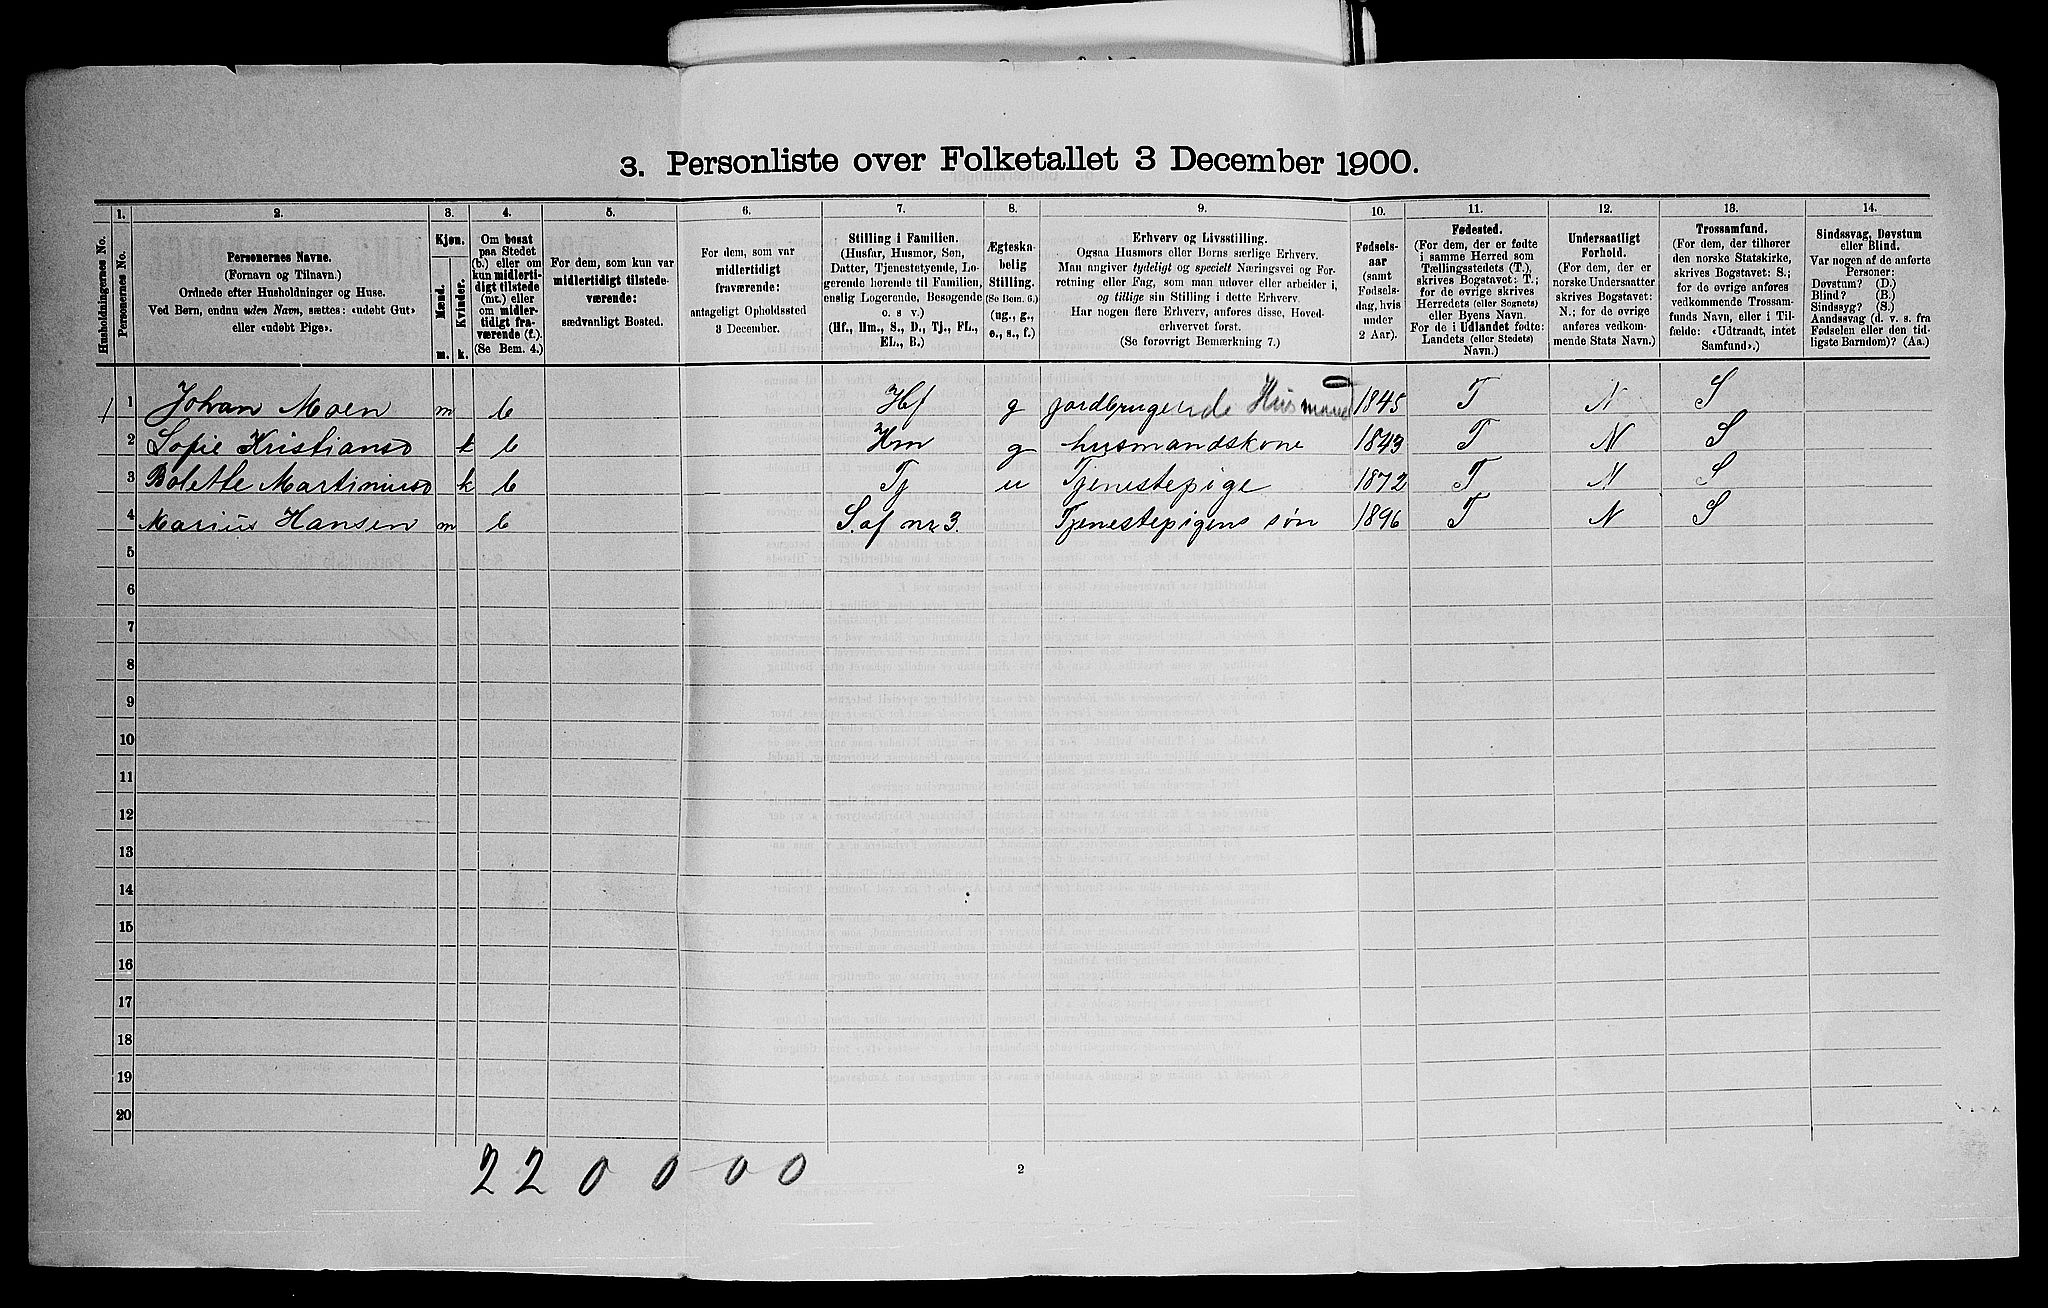 3. Personliste over Folketallet 3 December 1900.
Husholdningernes No.
1.
Personernes No.
2.
Personernes Navne.
(Fornavn og Tilnavn.)
Ordnede efter Husholdninger og Huse.
Ved Børn, endnu uden Navn, sættes: «udøbt Gut»
eller «udøbt Pige».
3.
Kjøn.
Mænd.
Kvinder.
m. k.
4.
Om bosat
paa Stedet
(b.) eller om
kun midlerti-
digt tilstede
(mt.) eller
om midler-
tidigt fra-
værende (f.).
(Se Bem. 4.)
5.
For dem, som kun var
midlertidigt tilstede-
værende:
sædvanligt Bosted.
6.
For dem, som var
midlertidigt
fraværende:
antageligt Opholdssted
3 December.
7.
Stilling i Familien.
(Husfar, Husmor, Søn,
Datter, Tjenestetyende, Lo-
gerende hørende til Familien,
enslig Logerende, Besøgende
o. s v.)
(Hf., Hm., S., D., Tj., FL.,
EL., B.)
8.
Ægteska-
belig
Stilling.
(Se Bem. 6.)
(ug., g.,
e., s., f.)
9.
Erhverv og Livsstilling.
Ogsaa Husmors eller Børns særlige Erhverv.
Man angiver tydeligt og specielt Næringsvei og For-
retning eller Fag, som man udøver eller arbeider i,
og tillige sin Stilling i dette Erhverv.
Har nogen flere Erhverv, anføres disse, Hoved-
erhvervet først.
(Se forøvrigt Bemærkning 7.)
10.
Fødsels-
aar
(samt
Fødsels-
dag, hvis
under
2 Aar).
11.
Fødested.
(For dem, der er fødte
i samme Herred som
Tællingsstedets (T.),
skrives Bogstavet: T.;
for de øvrige skrives
Herredets (eller Sognets)
eller Byens Navn.
For de i Udlandet fødte:
Landets (eller Stedets)
Navn.)
12.
Undersaatligt
Forhold.
(For dem, der er
norske Undersaatter
skrives Bogstavet:
N.; for de øvrige
anføres vedkom-
mende Stats Navn.)
13.
Trossamfund.
(For dem, der tilhører
den norske Statskirke,
skrives Bogstavet: S.;
for de øvrige anføres
vedkommende Trossam-
funds Navn, eller i Til-
fælde: «Udtraadt, intet
Samfund».)
14.
Sindssvag, Døvstum
eller Blind.
Var nogen af de anførte
Personer:
Døvstum? (D.)
Blind? (B.)
Sindssyg? (S.)
Aandssvag (d. v. s. fra
Fødselen eller den tid-
ligste Barndom)? (Aa.)
1 Johan Moen m b Hf g jordbrugende Husmand 1845 T N S
2 Sofie Kristiansd k b Hm g husmandskone 1843 T N S
3 Bolette Martinusd k b Tj u Tjenestepige 1872 T N S
4 Marius Hansen m b S. af nr 3. Tjenestepigens søn 1896 T N S
5
6
7
8
9
10
11
12
13
14
15
16
17
18
19
20
2 2 0 0 0 0
2